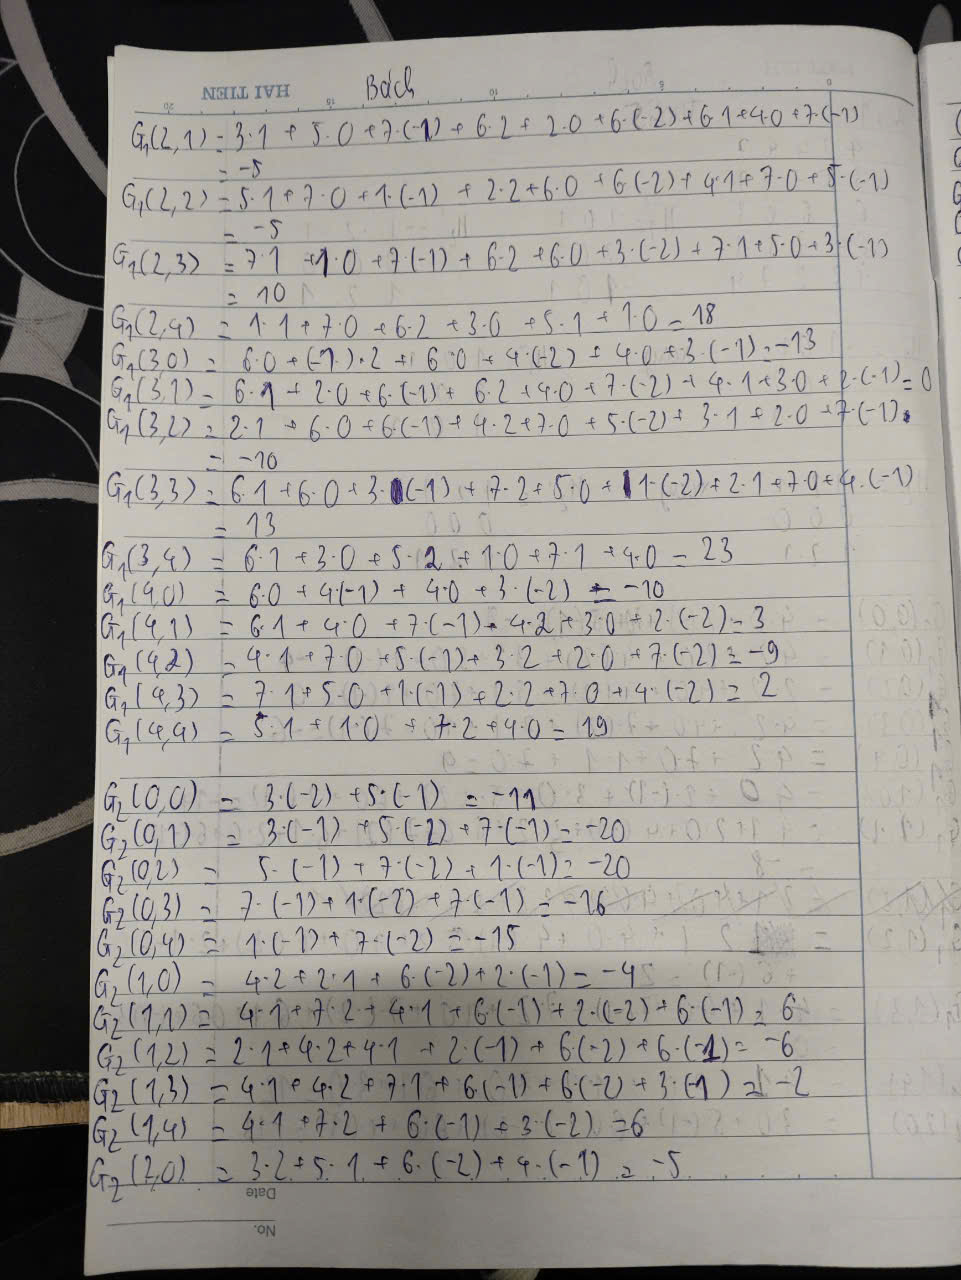 HAI TIEN
Bách
G₁(2,1) = 3.1 + 5.0 + 7.(-1) + 6.2 + 2.0 + 6.(-2) + 6.1 + 4.0 + 7.(-1)
= -5
G₁(2,2) = 5.1 + 7.0 + 1.(-1) + 2.2 + 6.0 + 6(-2) + 4.1 + 7.0 + 5.(-1)
= -5
G₁(2,3) = 7.1 + 1.0 + 7(-1) + 6.2 + 6.0 + 3.(-2) + 7.1 + 5.0 + 3.(-1)
= 10
G₁(2,4) = 1.1 + 7.0 + 6.2 + 3.0 + 5.1 + 1.0 = 18
G₁(3,0) = 6.0 + (-1).2 + 6.0 + 4.(-2) + 4.0 + 3.(-1) = -13
G₁(3,1) = 6.1 + 2.0 + 6.(-1) + 6.2 + 4.0 + 7.(-2) + 4.1 + 3.0 + 2.(-1) = 0
G₁(3,2) = 2.1 + 6.0 + 6(-1) + 4.2 + 7.0 + 5.(-2) + 3.1 + 2.0 + 7.(-1)
= -10
G₁(3,3) = 6.1 + 6.0 + 3.(-1) + 7.2 + 5.0 + 1.(-2) + 2.1 + 7.0 + 4.(-1)
= 13
G₁(3,4) = 6.1 + 3.0 + 5.2 + 1.0 + 7.1 + 4.0 = 23
G₁(4,0) = 6.0 + 4(-1) + 4.0 + 3.(-2) = -10
G₁(4,1) = 6.1 + 4.0 + 7.(-1) + 4.2 + 3.0 + 2.(-2) = 3
G₁(4,2) = 4.1 + 7.0 + 5.(-1) + 3.2 + 2.0 + 7.(-2) = -9
G₁(4,3) = 7.1 + 5.0 + 1.(-1) + 2.2 + 7.0 + 4.(-2) = 2
G₁(4,4) = 5.1 + 1.0 + 7.2 + 4.0 = 19
G₂(0,0) = 3.(-2) + 5.(-1) = -11
G₂(0,1) = 3.(-1) + 5.(-2) + 7.(-1) = -20
G₂(0,2) = 5.(-1) + 7.(-2) + 1.(-1) = -20
G₂(0,3) = 7.(-1) + 1.(-2) + 7.(-1) = -16
G₂(0,4) = 1.(-1) + 7.(-2) = -15
G₂(1,0) = 4.2 + 2.1 + 6.(-2) + 2.(-1) = -4
G₂(1,1) = 4.1 + 7.2 + 4.1 + 6(-1) + 2.(-2) + 6.(-1) = 6
G₂(1,2) = 2.1 + 4.2 + 4.1 + 2.(-1) + 6(-2) + 6.(-1) = -6
G₂(1,3) = 4.1 + 4.2 + 7.1 + 6(-1) + 6(-2) + 3.(-1) = -2
G₂(1,4) = 4.1 + 7.2 + 6.(-1) + 3.(-2) = 6
G₂(2,0) = 3.2 + 5.1 + 6.(-2) + 4.(-1) = -5
Date
No.